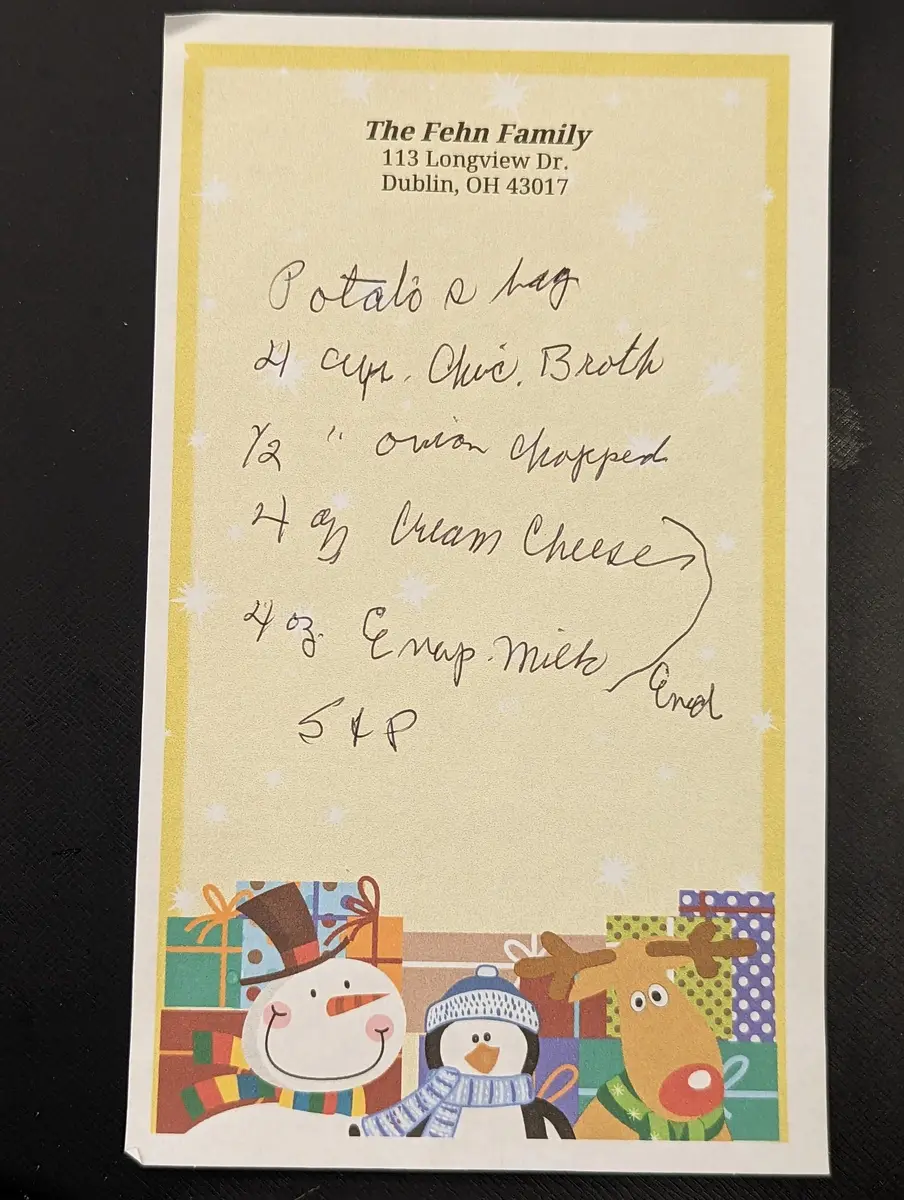 The Fehn Family
113 Longview Dr.
Dublin, OH 43017
Potato bag
4 cups. Chic. Broth
1/2 " onion chopped
4 oz Cream Cheese
4 oz. Evap. Milk
End
S & P